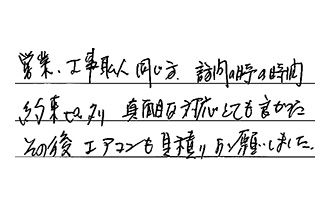 営業、工事職人同じ方、訪問の時の時間
約束ぴったり 真面目な対応とても良かった
その後エアコンも見積りお願いしました。